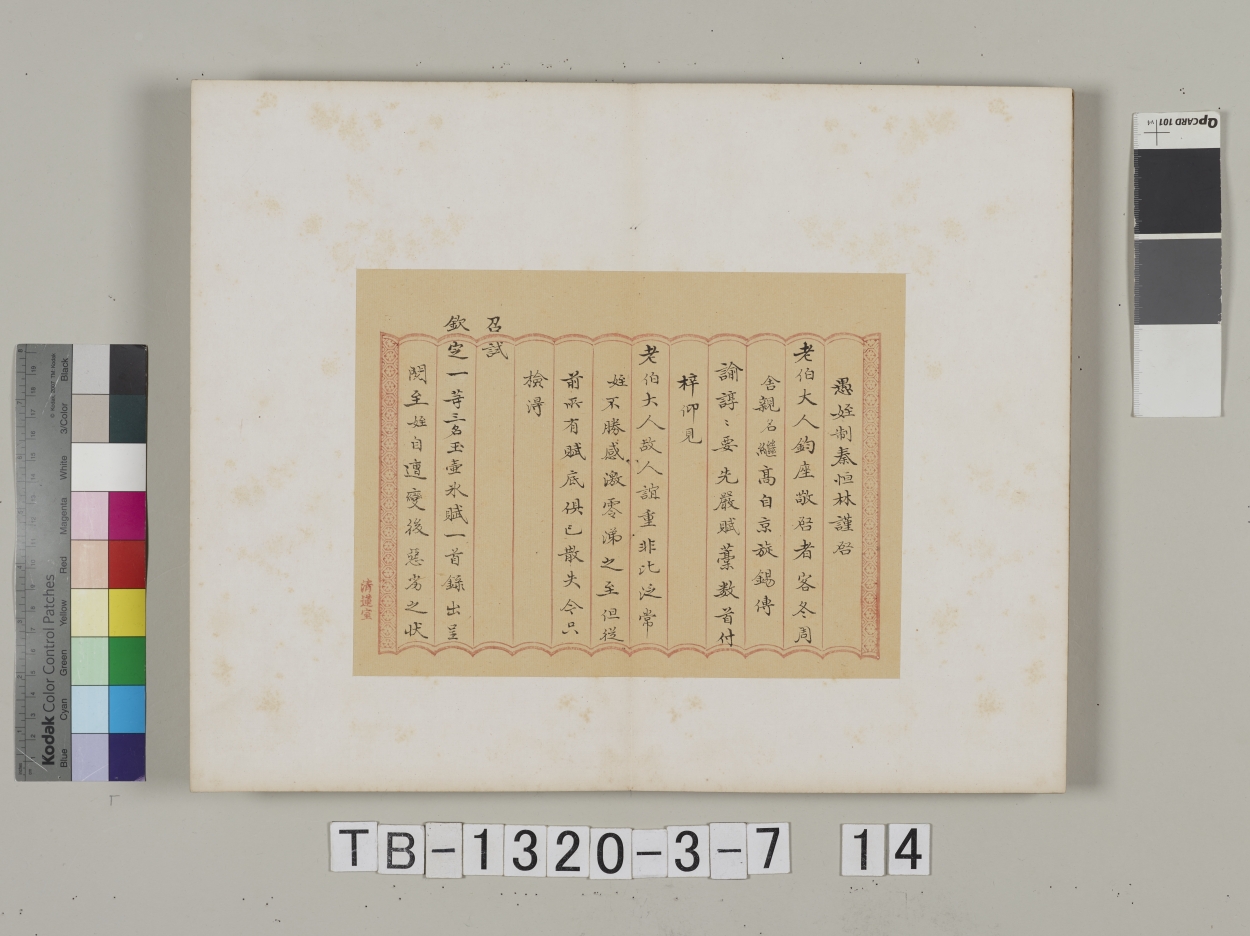 愚姪制秦恒林謹啓
老伯大人鈞座敬啓者客冬周
舍親名繼髙自京旋錫傳
諭諄〻要先嚴賦藁数首付
梓仰見
老伯大人故人誼重非比泛常
姪不勝感激零涕之至但從
前所有賦底俱已散失今只
檢淂
召試
欽定一等三名玉壷氷賦一首錄出呈
閱至姪自遭變後惡劣之狀
清
Kodak Color Control Patches
Blue
Cyan
Green
Yellow
Red
Magenta
White
3/Color
Black
QPCARD 101 v1
TB-1320-3-7 14